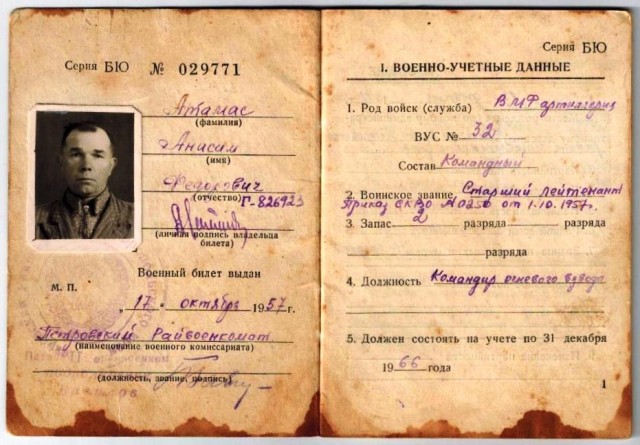 Серия БЮ № 029771
Атамас
(фамилия)
Анисим
(имя)
Федокович
(отчество) Г-826923
(личная подпись владельца
билета)
М. П.
Военный билет выдан
„17" октябрь 1957 г.
Петровский Райвоенкомат
(наименование военного комиссариата)
(должность, звание, подпись)
Серия БЮ
I. ВОЕННО-УЧЕТНЫЕ ДАННЫЕ
1. Род войск (служба) ВМФ артиллерия
ВУС № 32
Состав Командный
2. Воинское звание Старший лейтенант
Приказ СКВО №0256 от 1.10.1957г.
3. Запас 2 разряда разряда
разряда
4. Должность Командир огневого взвода
5. Должен состоять на учете по 31 декабря
1966 года
1